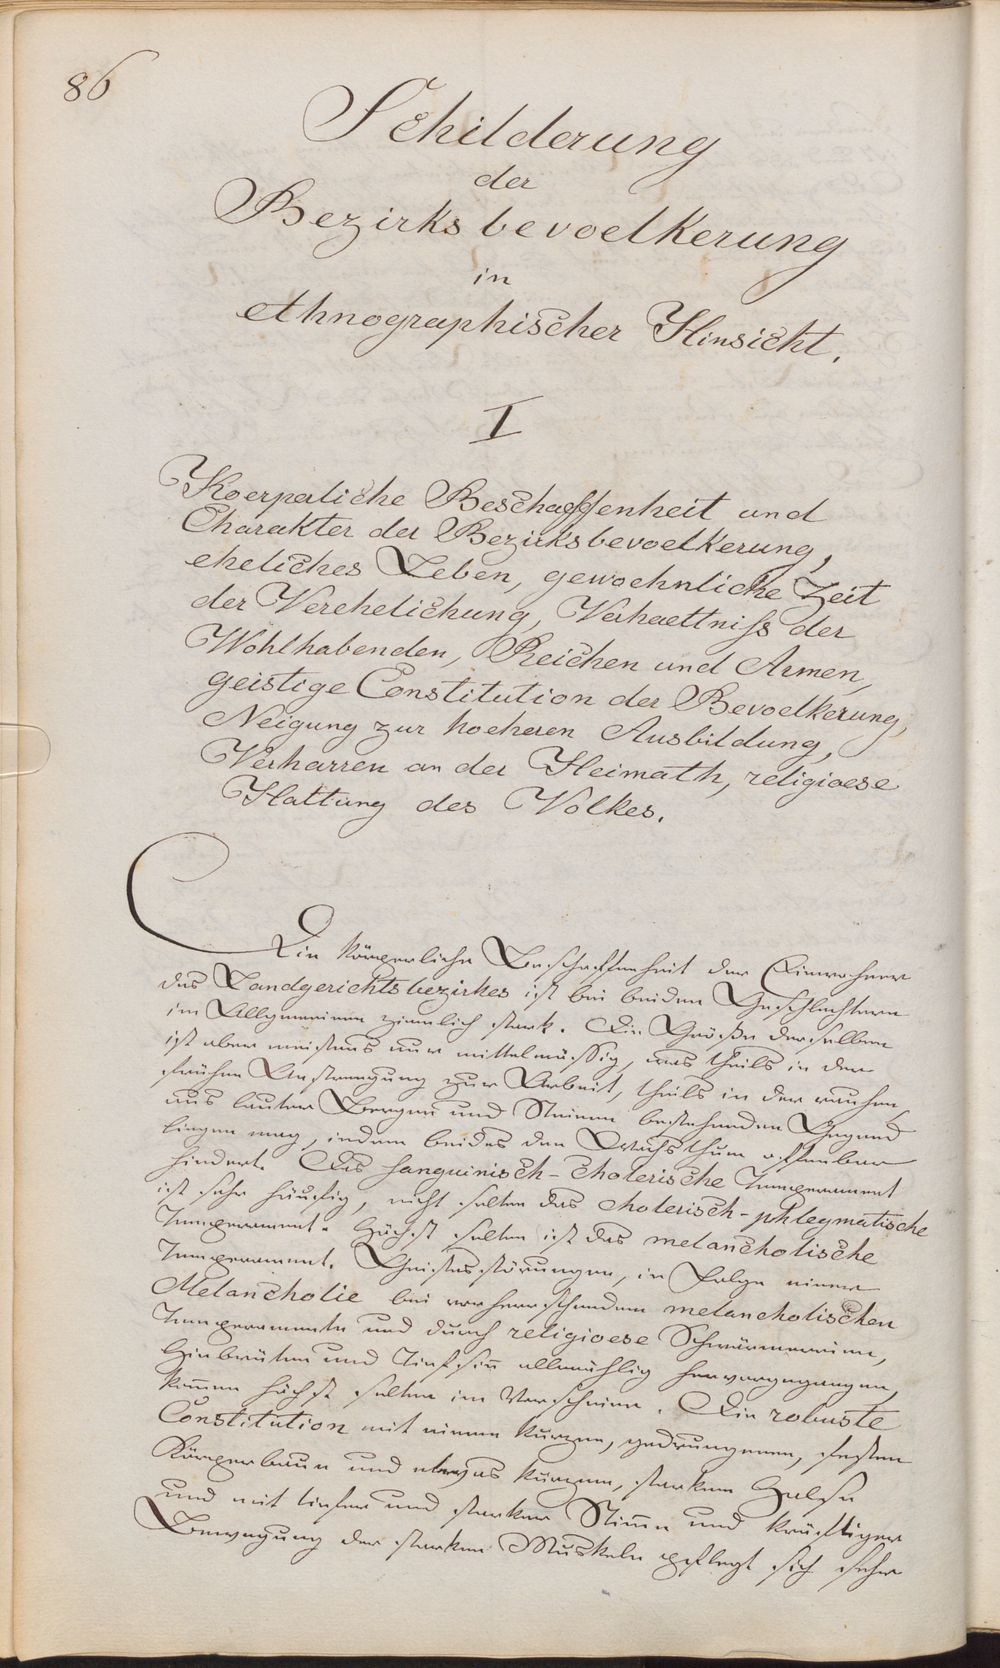 86
Schilderung
der
Bezirksbevoelkerung
in
ethnographischer Hinsicht.
I
Koerperliche Beschaffenheit und
Charakter der Bezirksbevoelkerung,
eheliches Leben, gewoehnliche Zeit
der Verehelichung, Verhaeltniss der
Wohlhabenden, Reichen und Armen,
geistige Constitution der Bevoelkerung,
Neigung zur hoeheren Ausbildung,
Verharren an der Heimath, religioese
Haltung des Volkes.
Die körperliche Beschaffenheit der Einwohner
des Landgerichtsbezirkes ist bei beiden Geschlechtern
im Allgemeinen ziemlich stark. Die Größe derselben
ist aber meistens nur mittelmäßig, was theils in der
frühen Anstrengung zur Arbeit, theils in der rauhen,
aus lauter Bergen und Steinen bestehenden Gegend
liegen mag, indem beides den Wachsthum offenbar
hindert. Das sanguinisch-cholerische Temperament
ist sehr häufig, nicht selten das cholerisch-phlegmatische
Temperament. Höchst selten ist das melancholische
Temperament. Geistesstörungen, in Folge einer
Melancholie bei vorherrschendem melancholischen
Temperamente und durch religioese Schwärmereien,
Hinbrüten und Tiefsinn allmählig hervorgegangen,
kommen höchst selten im Vorscheine. Die robuste
Constitution mit einem kurzen, gedrungenen, festen
Körperbaue und etwas kurzem, starkem Halse
und mit tiefer und starker Stimme und kräftiger
Bewegung der starken Muskeln pflegt sich sehr